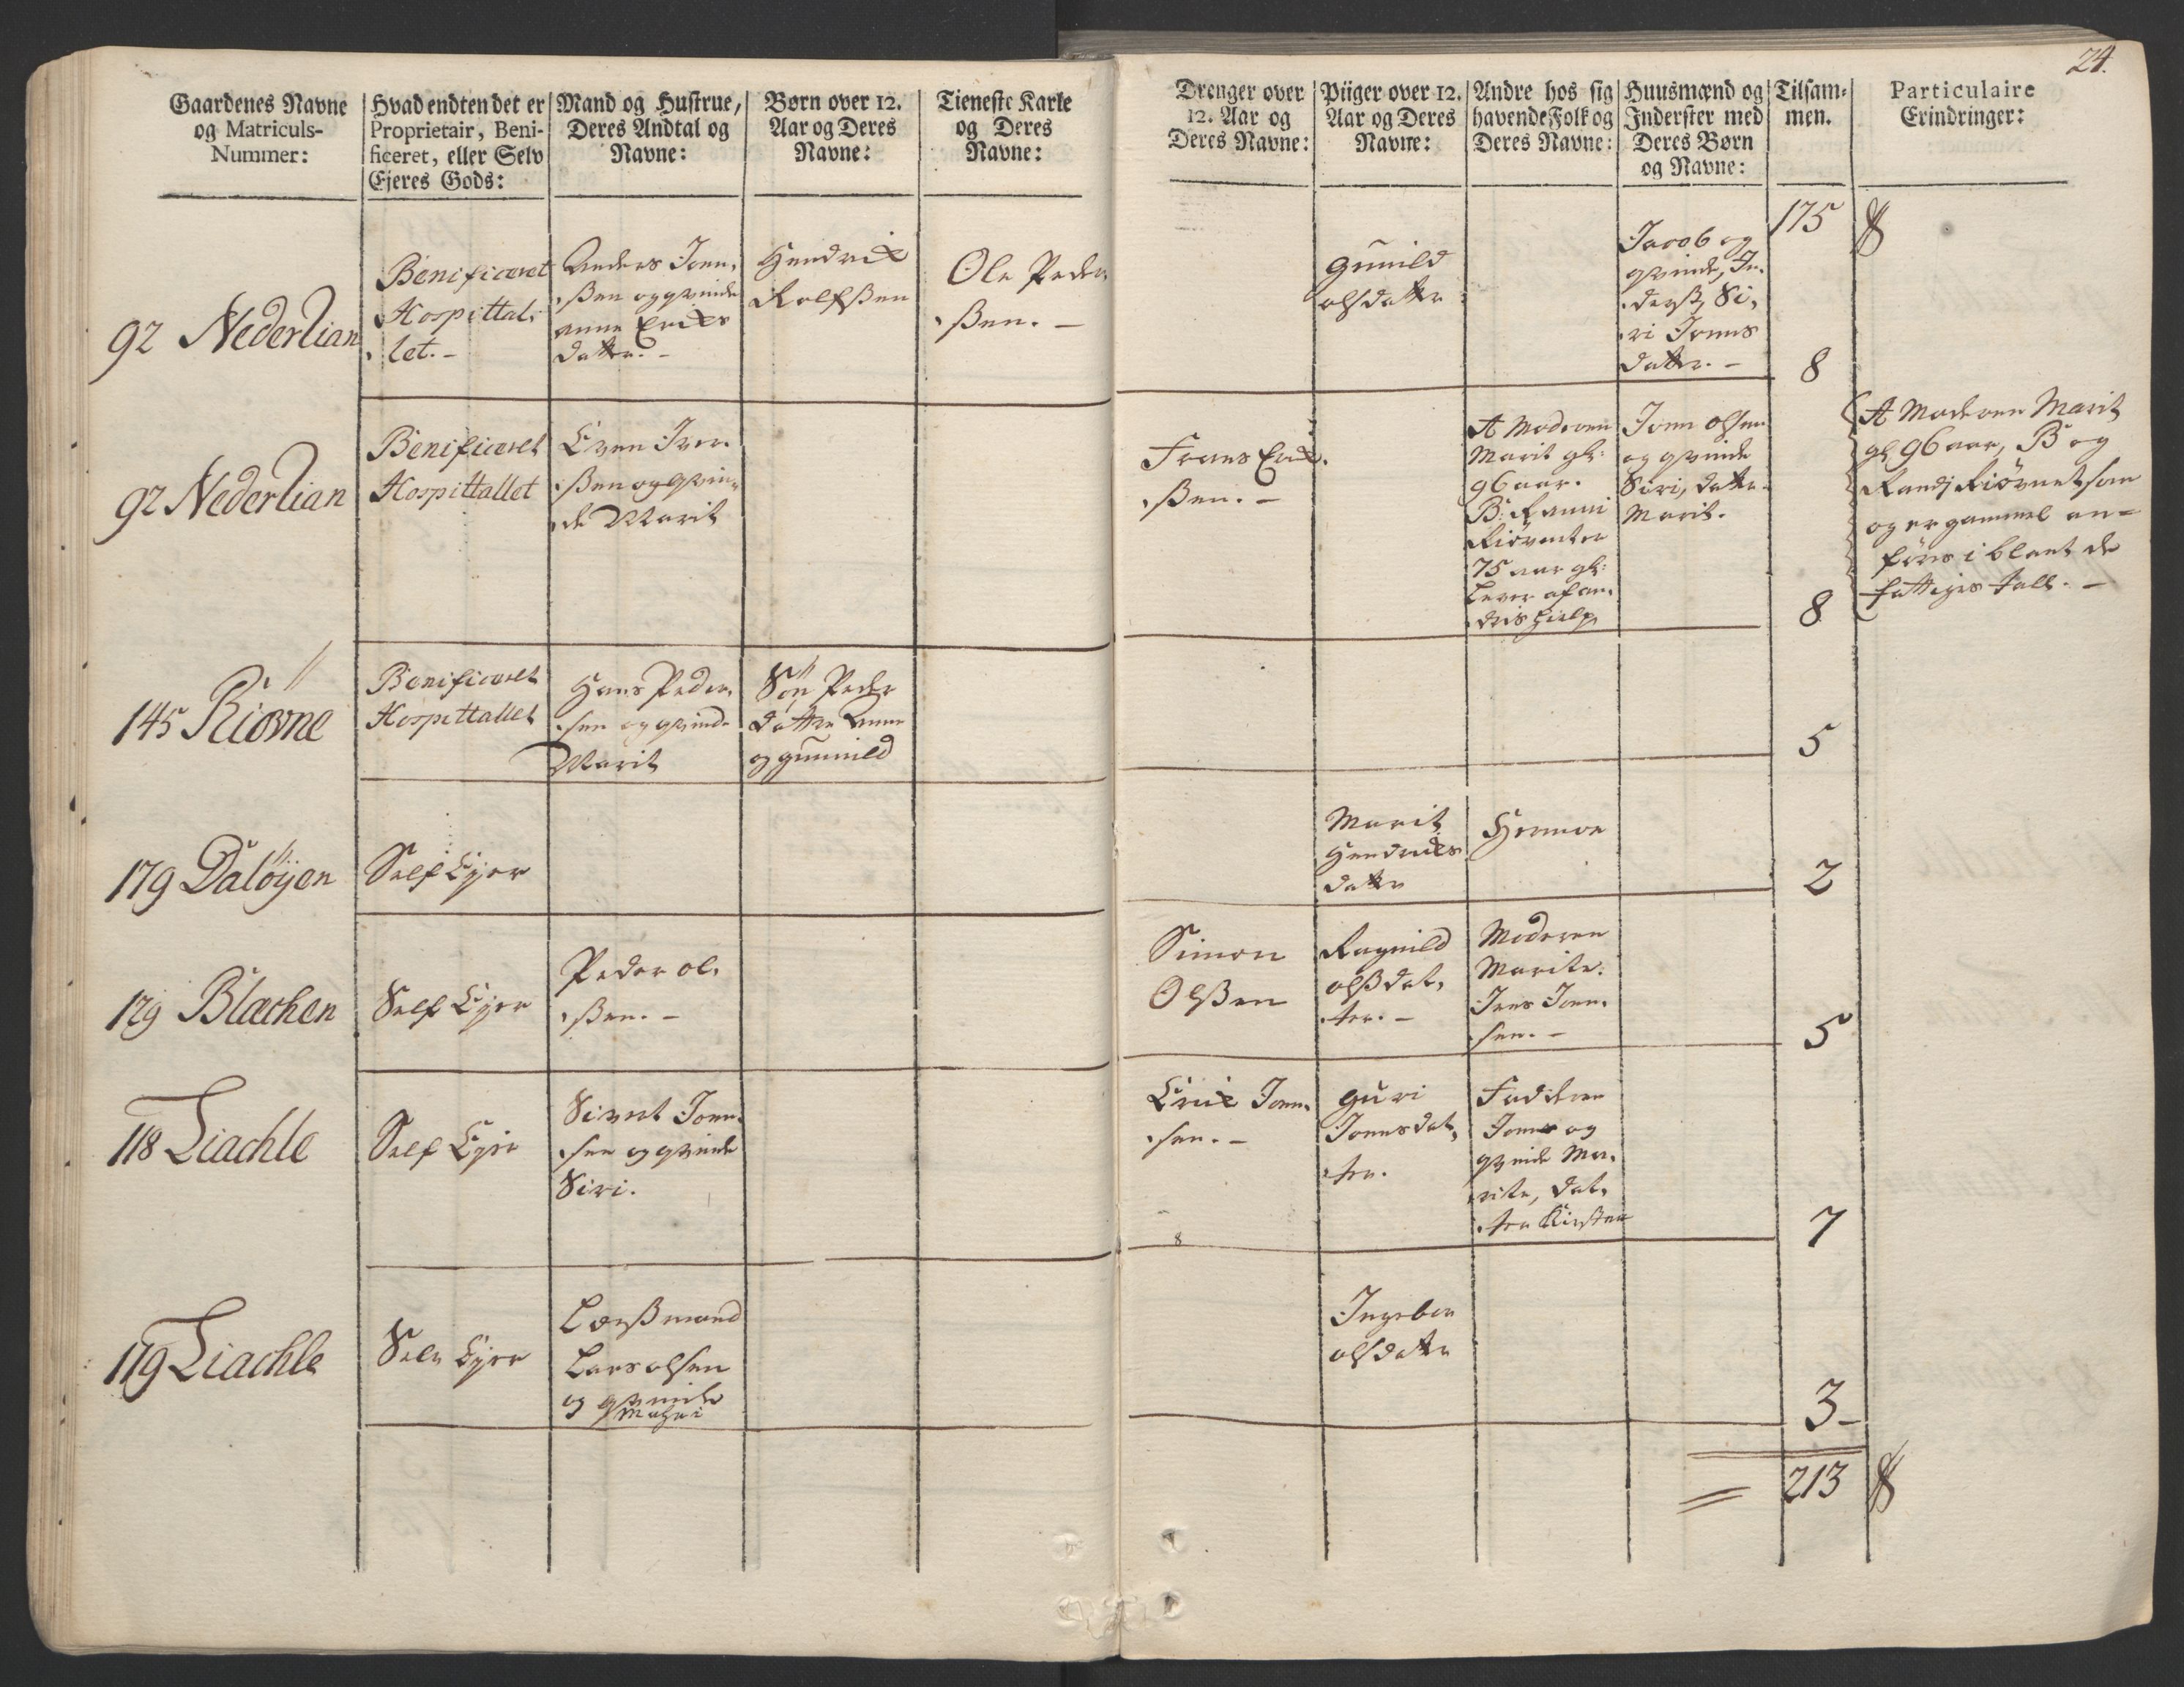 24.
Gaardenes Navne
og Matriculs-
Nummer:
Hvad endten det er
Proprietair, Beni-
ficeret, eller Selv
Ejeres Gods:
Mand og Hustrue,
Deres Andtal og
Navne:
Børn over 12.
Aar og Deres
Navne:
Tieneste Karle
og Deres
Navne:
Drenger over
12. Aar og
Deres Navne:
Piiger over 12.
Aar og Deres
Navne:
Andre hos sig
havende Folk og
Deres Navne:
Huusmænd og
Inderster med
Deres Børn
og Navne:
Tilsam-
men.
Particulaire
Erindringer:
175
92 Nederlian
Benificeret
Hospittal-
let. -
Anders Joen-
ßen og qvinde
anne Erichs
datter. -
Hendrich
Rolfßen
Ole Peder-
ßen. -
gunild
olsdatter
Jacob og
qvinde, In-
derst, Si-
ri Joens
datter. -
8
92 Nederlian
Benificeret
Hospittallet
Even Iver-
ßen og qvin-
de Marit
Frans Erich-
ßen. -
A Moderen
Marit gl:
96 aar.
B:
Riøvneten
75 aar gl:
Lever af an-
dris hielp
Joen olsen
og qvinde
Siri, datter
Marit.
8
A Moderen Marit
gl 96 aar, B og
Randj Riøvnet som
og er gammel an-
føres i blant de
fattiges tall. -
145 Riøvne
Benificeret
Hospittallet
Hans Peder-
sen og qvinde
Marit
Søn Peder
datter Anne
og gunnild
5
179 Daløÿen
Self Ejer
Marit
Hendrichs
datter
2
179 Blæchen
Self Ejer
Peder ol-
ßen. -
Simon
Olßen
Ragnild
olßdat-
ter. -
Moderen
Marite.
Jens Joen-
sen. -
5
118 Liachle
Self Ejer
Sivert Joen-
sen og qvinde
Siri.
Erich Joen-
sen. -
guri
Joensdat-
ter.
Fadderen
Joen og
qvinde Ma-
rite, dat-
ter Kirsten
8
7
119 Liachle
Selv Ejer
Lensmand
Lars olsen
og qvinde
Ingebor
olsdatter
3 -
213